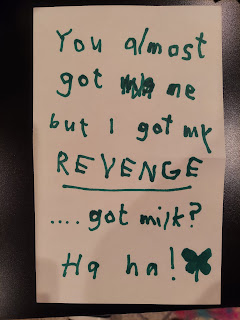 You almost
got me
but I got my
REVENGE
.... got milk?
Ha ha!